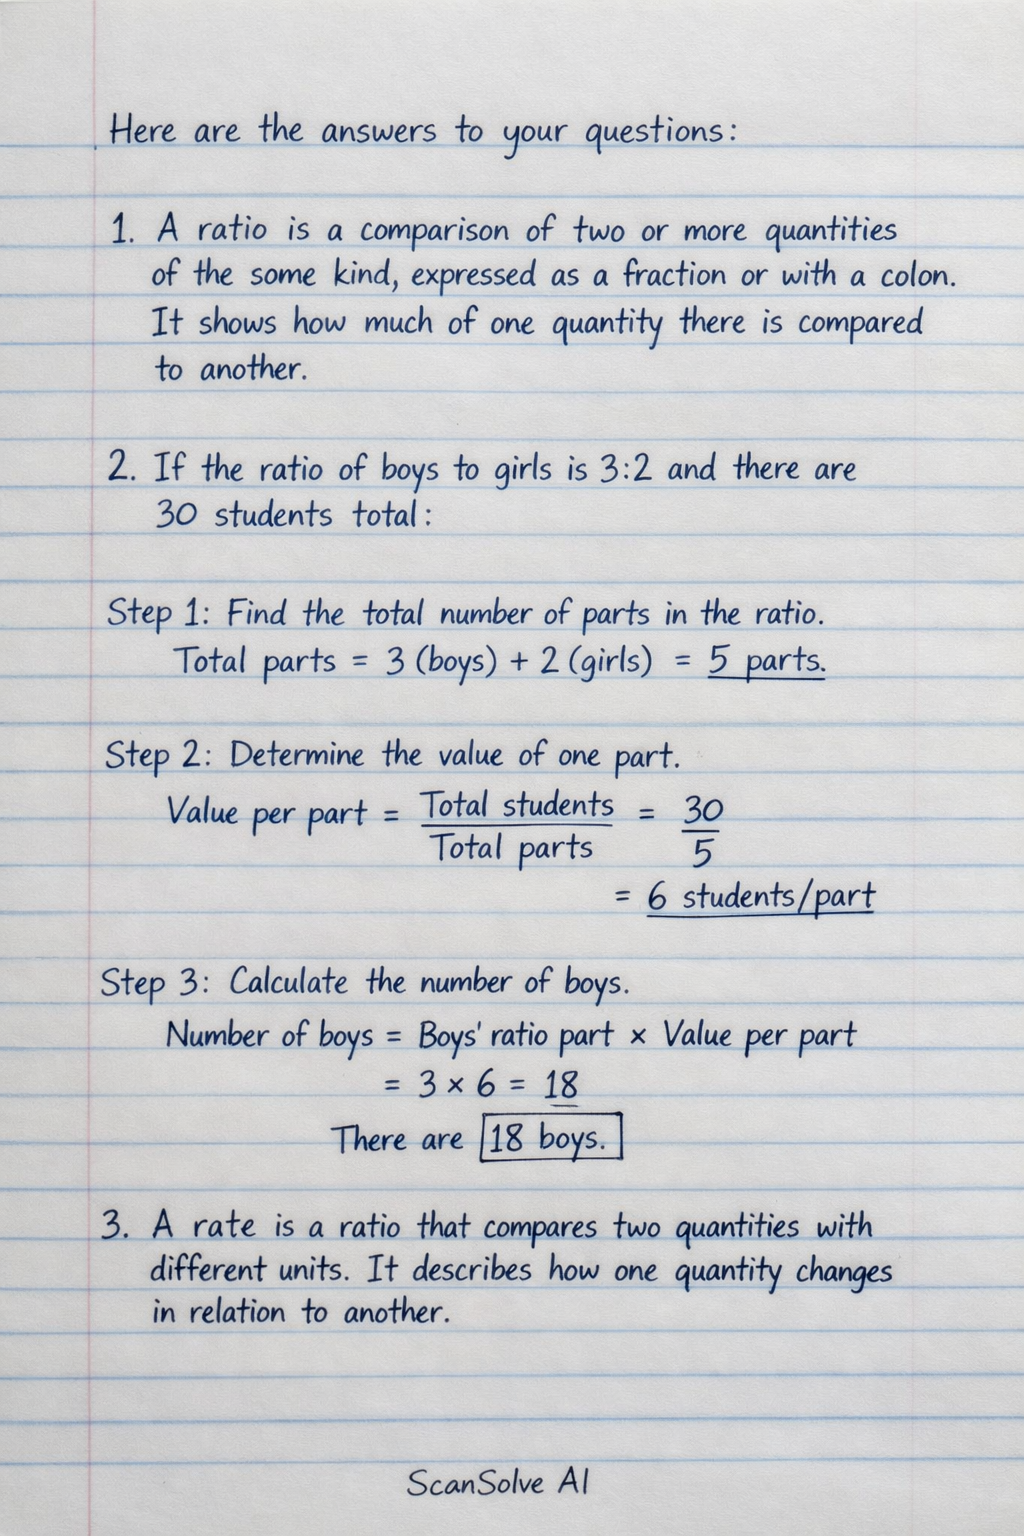 Here are the answers to your questions:
1. A ratio is a comparison of two or more quantities
of the some kind, expressed as a fraction or with a colon.
It shows how much of one quantity there is compared
to another.
2. If the ratio of boys to girls is 3:2 and there are
30 students total:
Step 1: Find the total number of parts in the ratio.
Total parts = 3 (boys) + 2 (girls) = 5 parts.
Step 2: Determine the value of one part.
Value per part = Total students / Total parts = 30 / 5
= 6 students/part
Step 3: Calculate the number of boys.
Number of boys = Boys' ratio part × Value per part
= 3 × 6 = 18
There are 18 boys.
3. A rate is a ratio that compares two quantities with
different units. It describes how one quantity changes
in relation to another.
ScanSolve AI